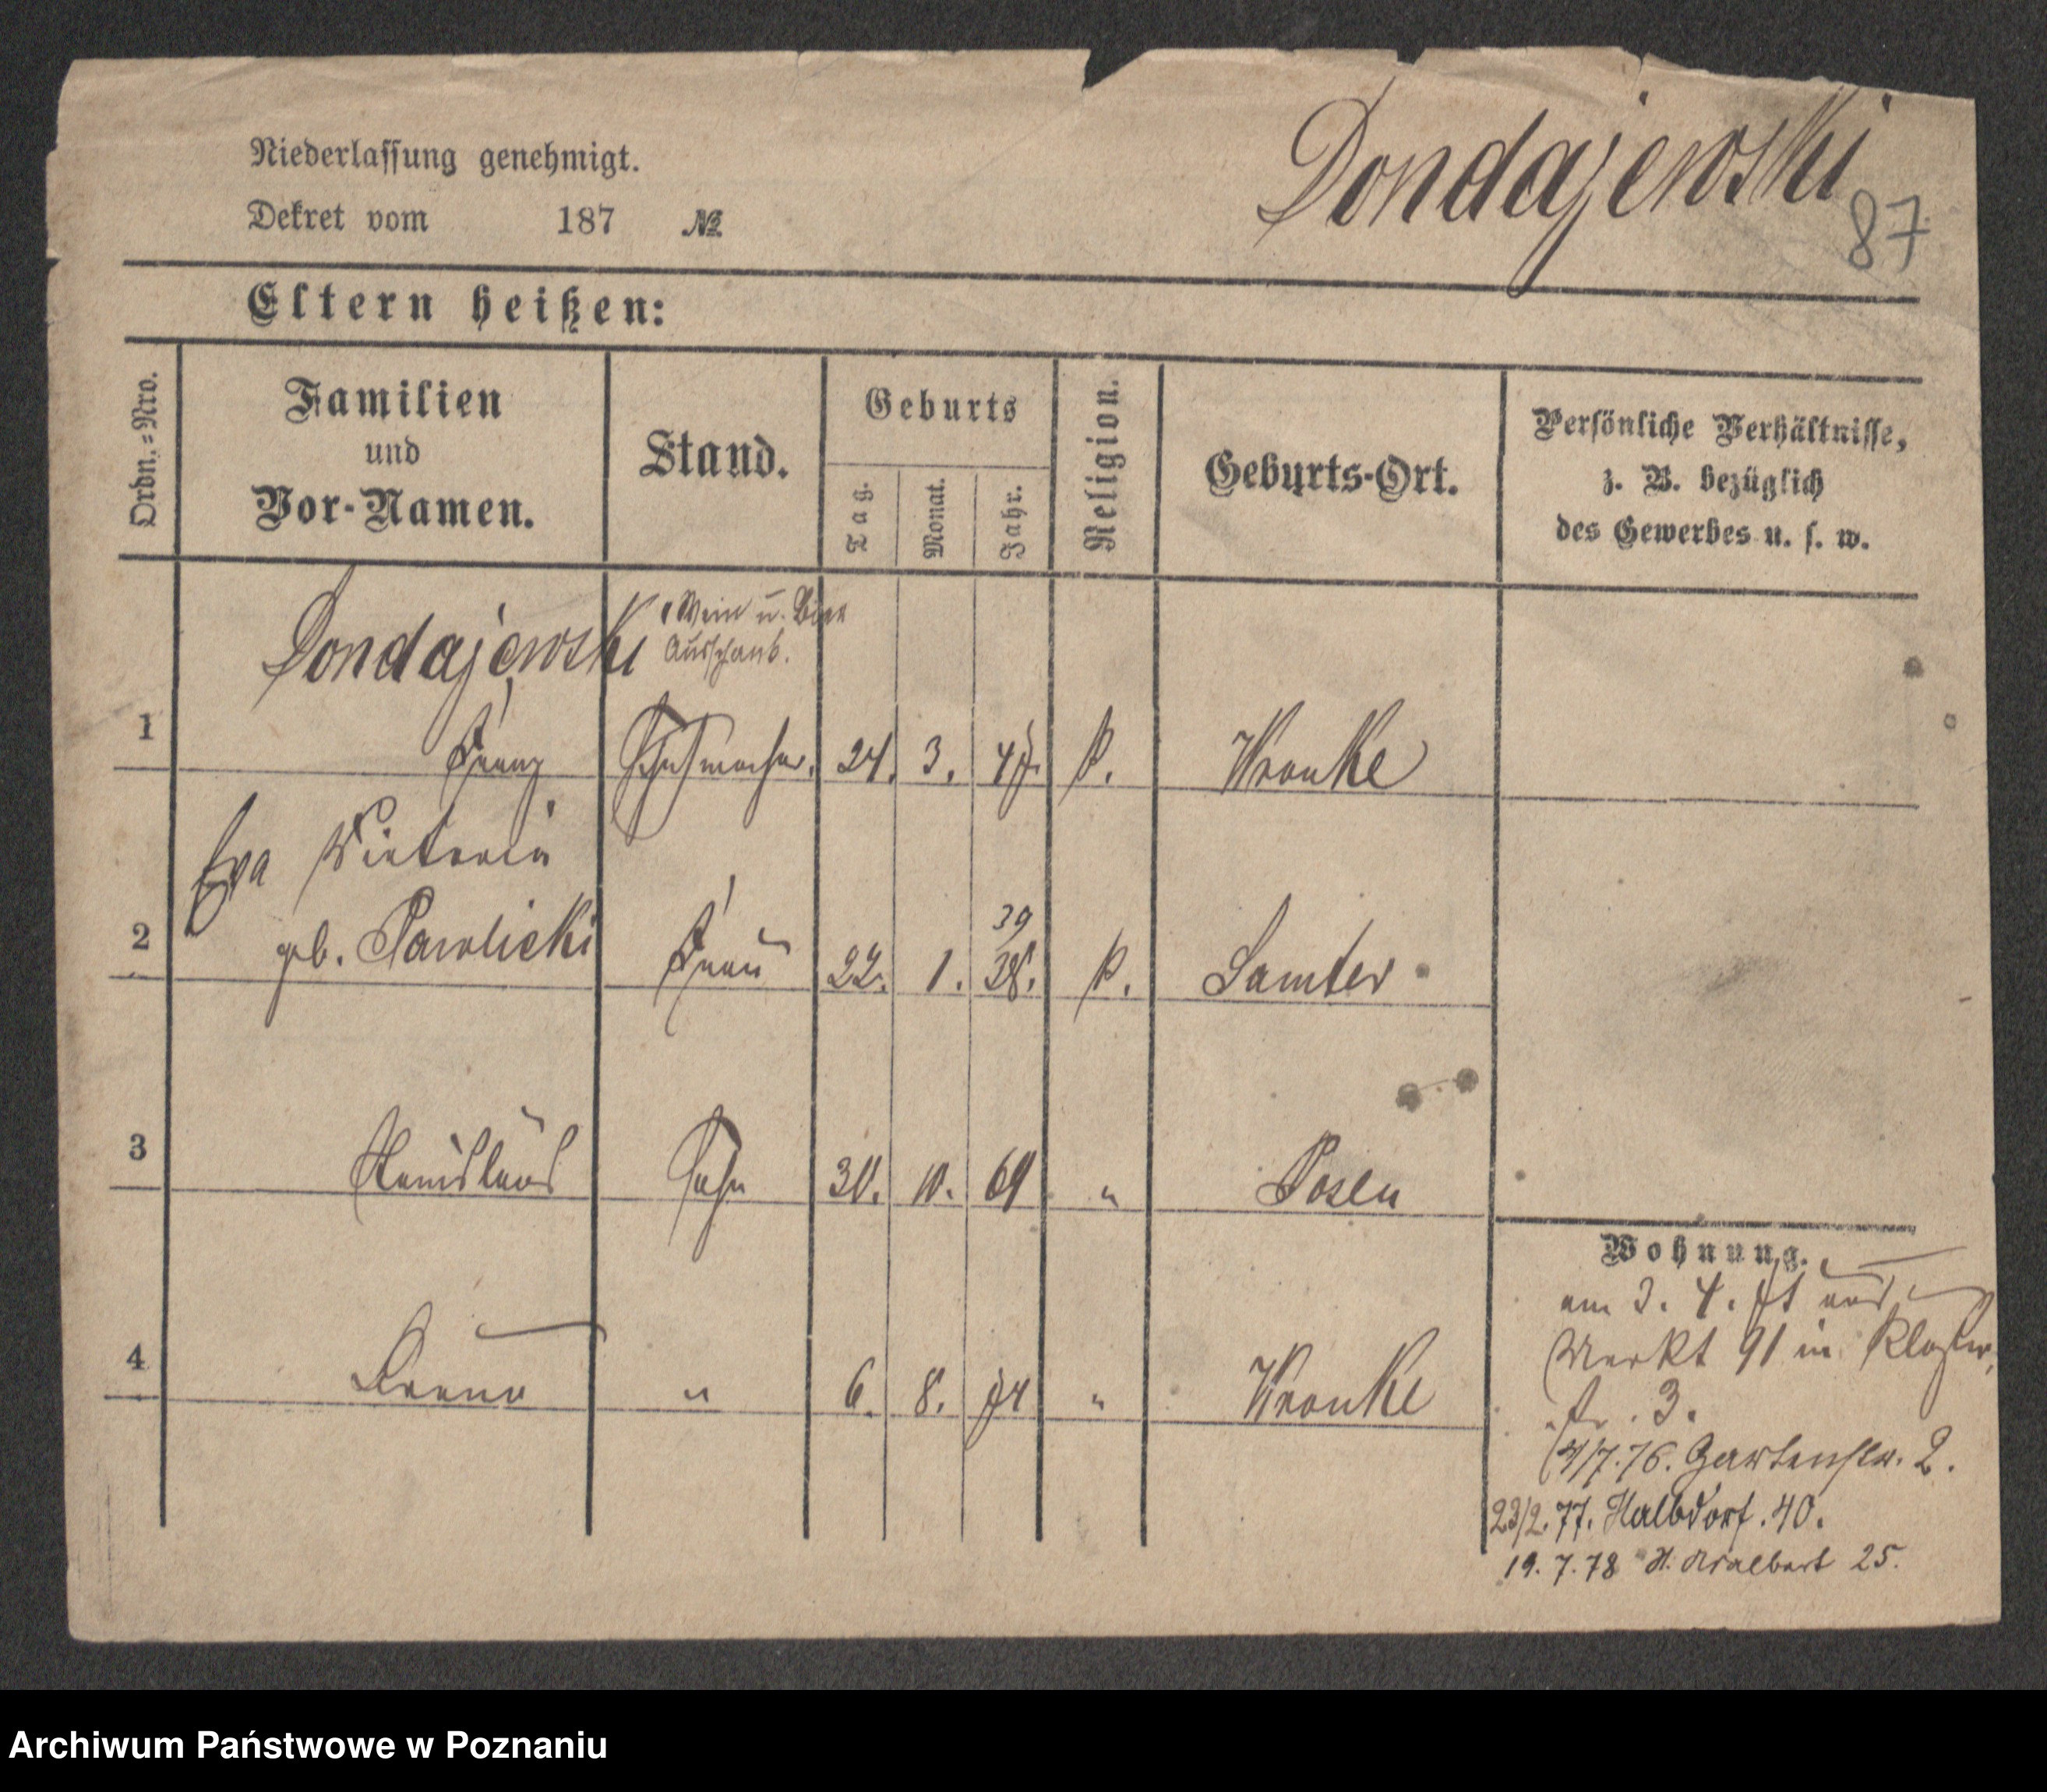 Niederlassung genehmigt.
Dekret vom 187 №
Dondajewski
87
Eltern heißen:
Ordn.=Nro.
Familien
und
Vor-Namen.
Stand.
Geburts
Tag.
Monat.
Jahr.
Religion.
Geburts-Ort.
Persönliche Verhältnisse,
z. B. bezüglich
des Gewerbes u. s. w.
Dondajewski
Wein u. Bier
Ausschank.
1 Franz Schuhmacher. 24. 3. K. Wronke
Eva Victoria
39
2 geb. Pawlicki Frau 22. 1. 38. K. Samter
3 Stanislaus Sohn 30. 10. 69 " Posen
4 " 6. 8. 74 " Wronke
Wohnung.
am 3. 4. aus
Markt 91 in Kloster
str. 3.
/7. 76. Gartenstr. 2.
23/2. 77. Halbdorf. 40.
19. 7. 78 St. Adalbert 25.
Archiwum Państwowe w Poznaniu